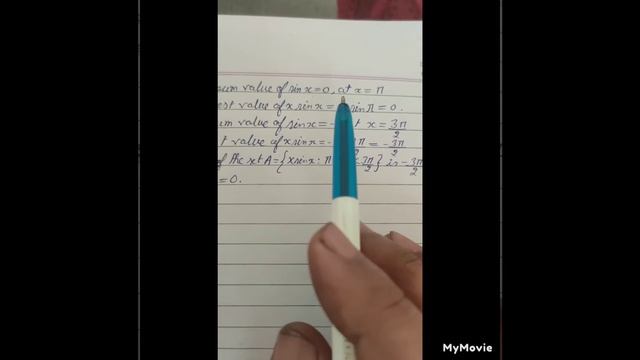 um value of sinx=0, at x = π
est value of x sinx= sinπ = 0.
um value of sinx=- at x = 3π/2
t value of x sinx=- = -3π/2
of the set A={x sinx: π 3π/2} is -3π/2
=0.
MyMovie